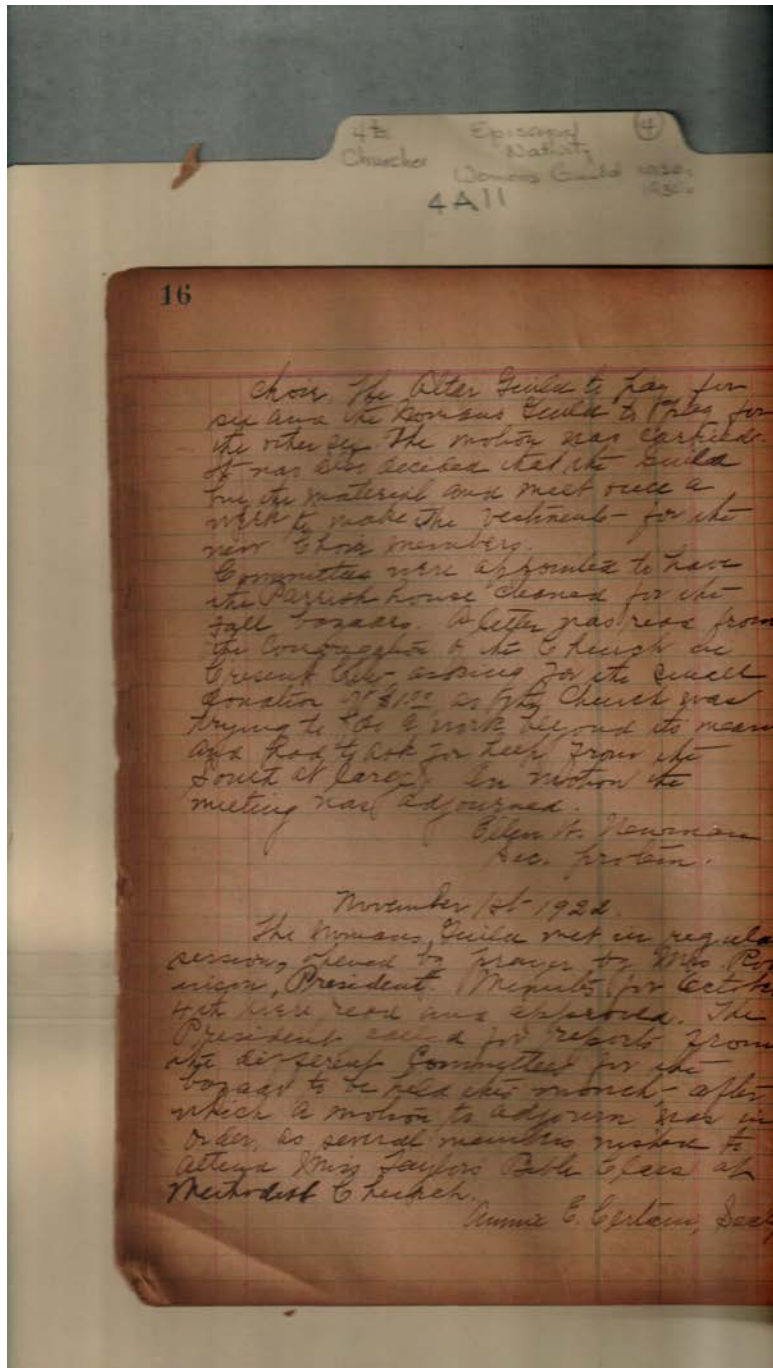 4 Episcopal 4
Churches Nativity
Womans Guild 1920s
1930s
4A11
16
choir. The Alter Guild to pay for
six and the Womans Guild to pay for
the other six. The motion was carried.
It was also decided that the Guild
buy the material and meet once a
week to make the vestments for the
new Choir members.
Committees were appointed to have
the Parrish house cleaned for the
fall bazaars. A letter was read from
the Congregation of the Church in
Cresent City asking for the small
donation of $1.00 as the Church was
trying to do a work beyond its means
and had to ask for help from the
South at large. On motion the
meeting was adjourned.
Ellen W. Newman
Sec. protem.
November 1st 1922.
The Womans Guild met in regula
session, opened by prayer by Mrs. Ro
inson, President. Minutes for Octobe
4th were read and approved. The
President called for reports from
the different Committees for the
bazaar to be held this month, after
which a motion to adjourn was in
order, as several members wished to
attend Miss Taylors Bible Class at
Methodist Church.
Annie E. Certain, Secty